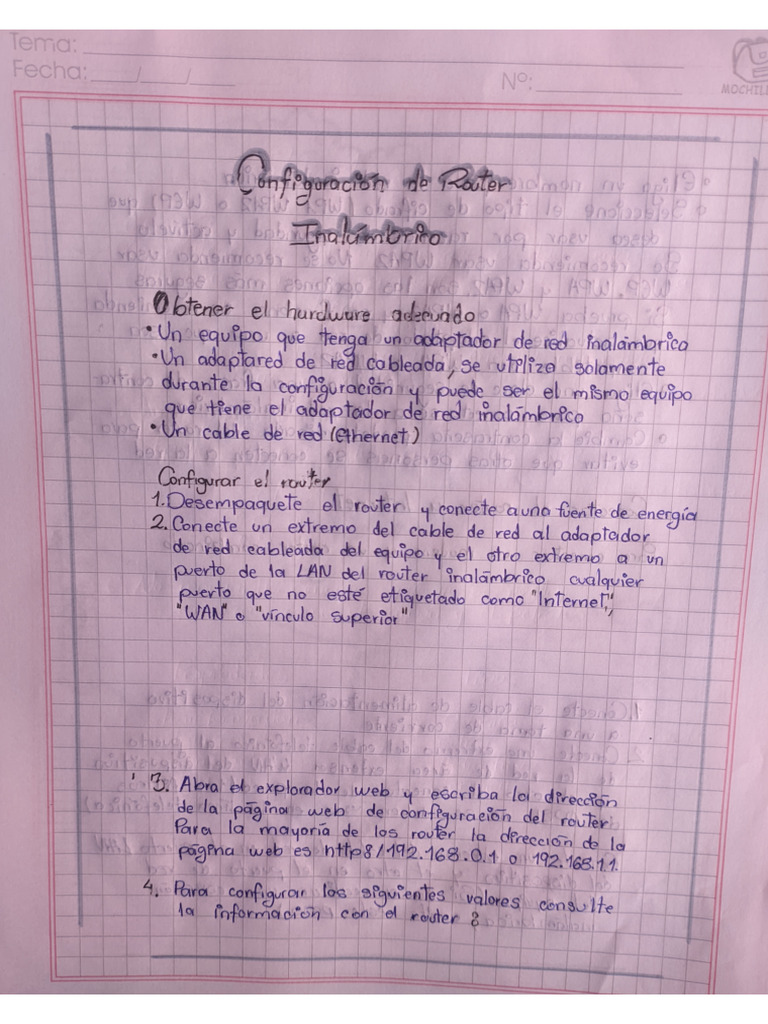 Tema:
Fecha: __/__/__
Nº:
MOCHIL
Configuración de Router
Inalámbrico
Obtener el hardware adecuado
• Un equipo que tenga un adaptador de red inalámbrica
• Un adaptared de red cableada, se utiliza solamente
durante la configuración y puede ser el mismo equipo
que tiene el adaptador de red inalámbrico
• Un cable de red (ethernet)
Configurar el router
1. Desempaquete el router y conecte a una fuente de energía
2. Conecte un extremo del cable de red al adaptador
de red cableada del equipo y el otro extremo a un
puerto de la LAN del router inalámbrico cualquier
puerto que no esté etiquetado como "Internet",
"WAN" o "vínculo superior"
3. Abra el explorador web y escriba la dirección
de la página web de configuración del router
Para la mayoría de los router la dirección de la
página web es http8/192.168.0.1 o 192.168.1.1.
4. Para configurar los siguientes valores consulte
la información con el router :